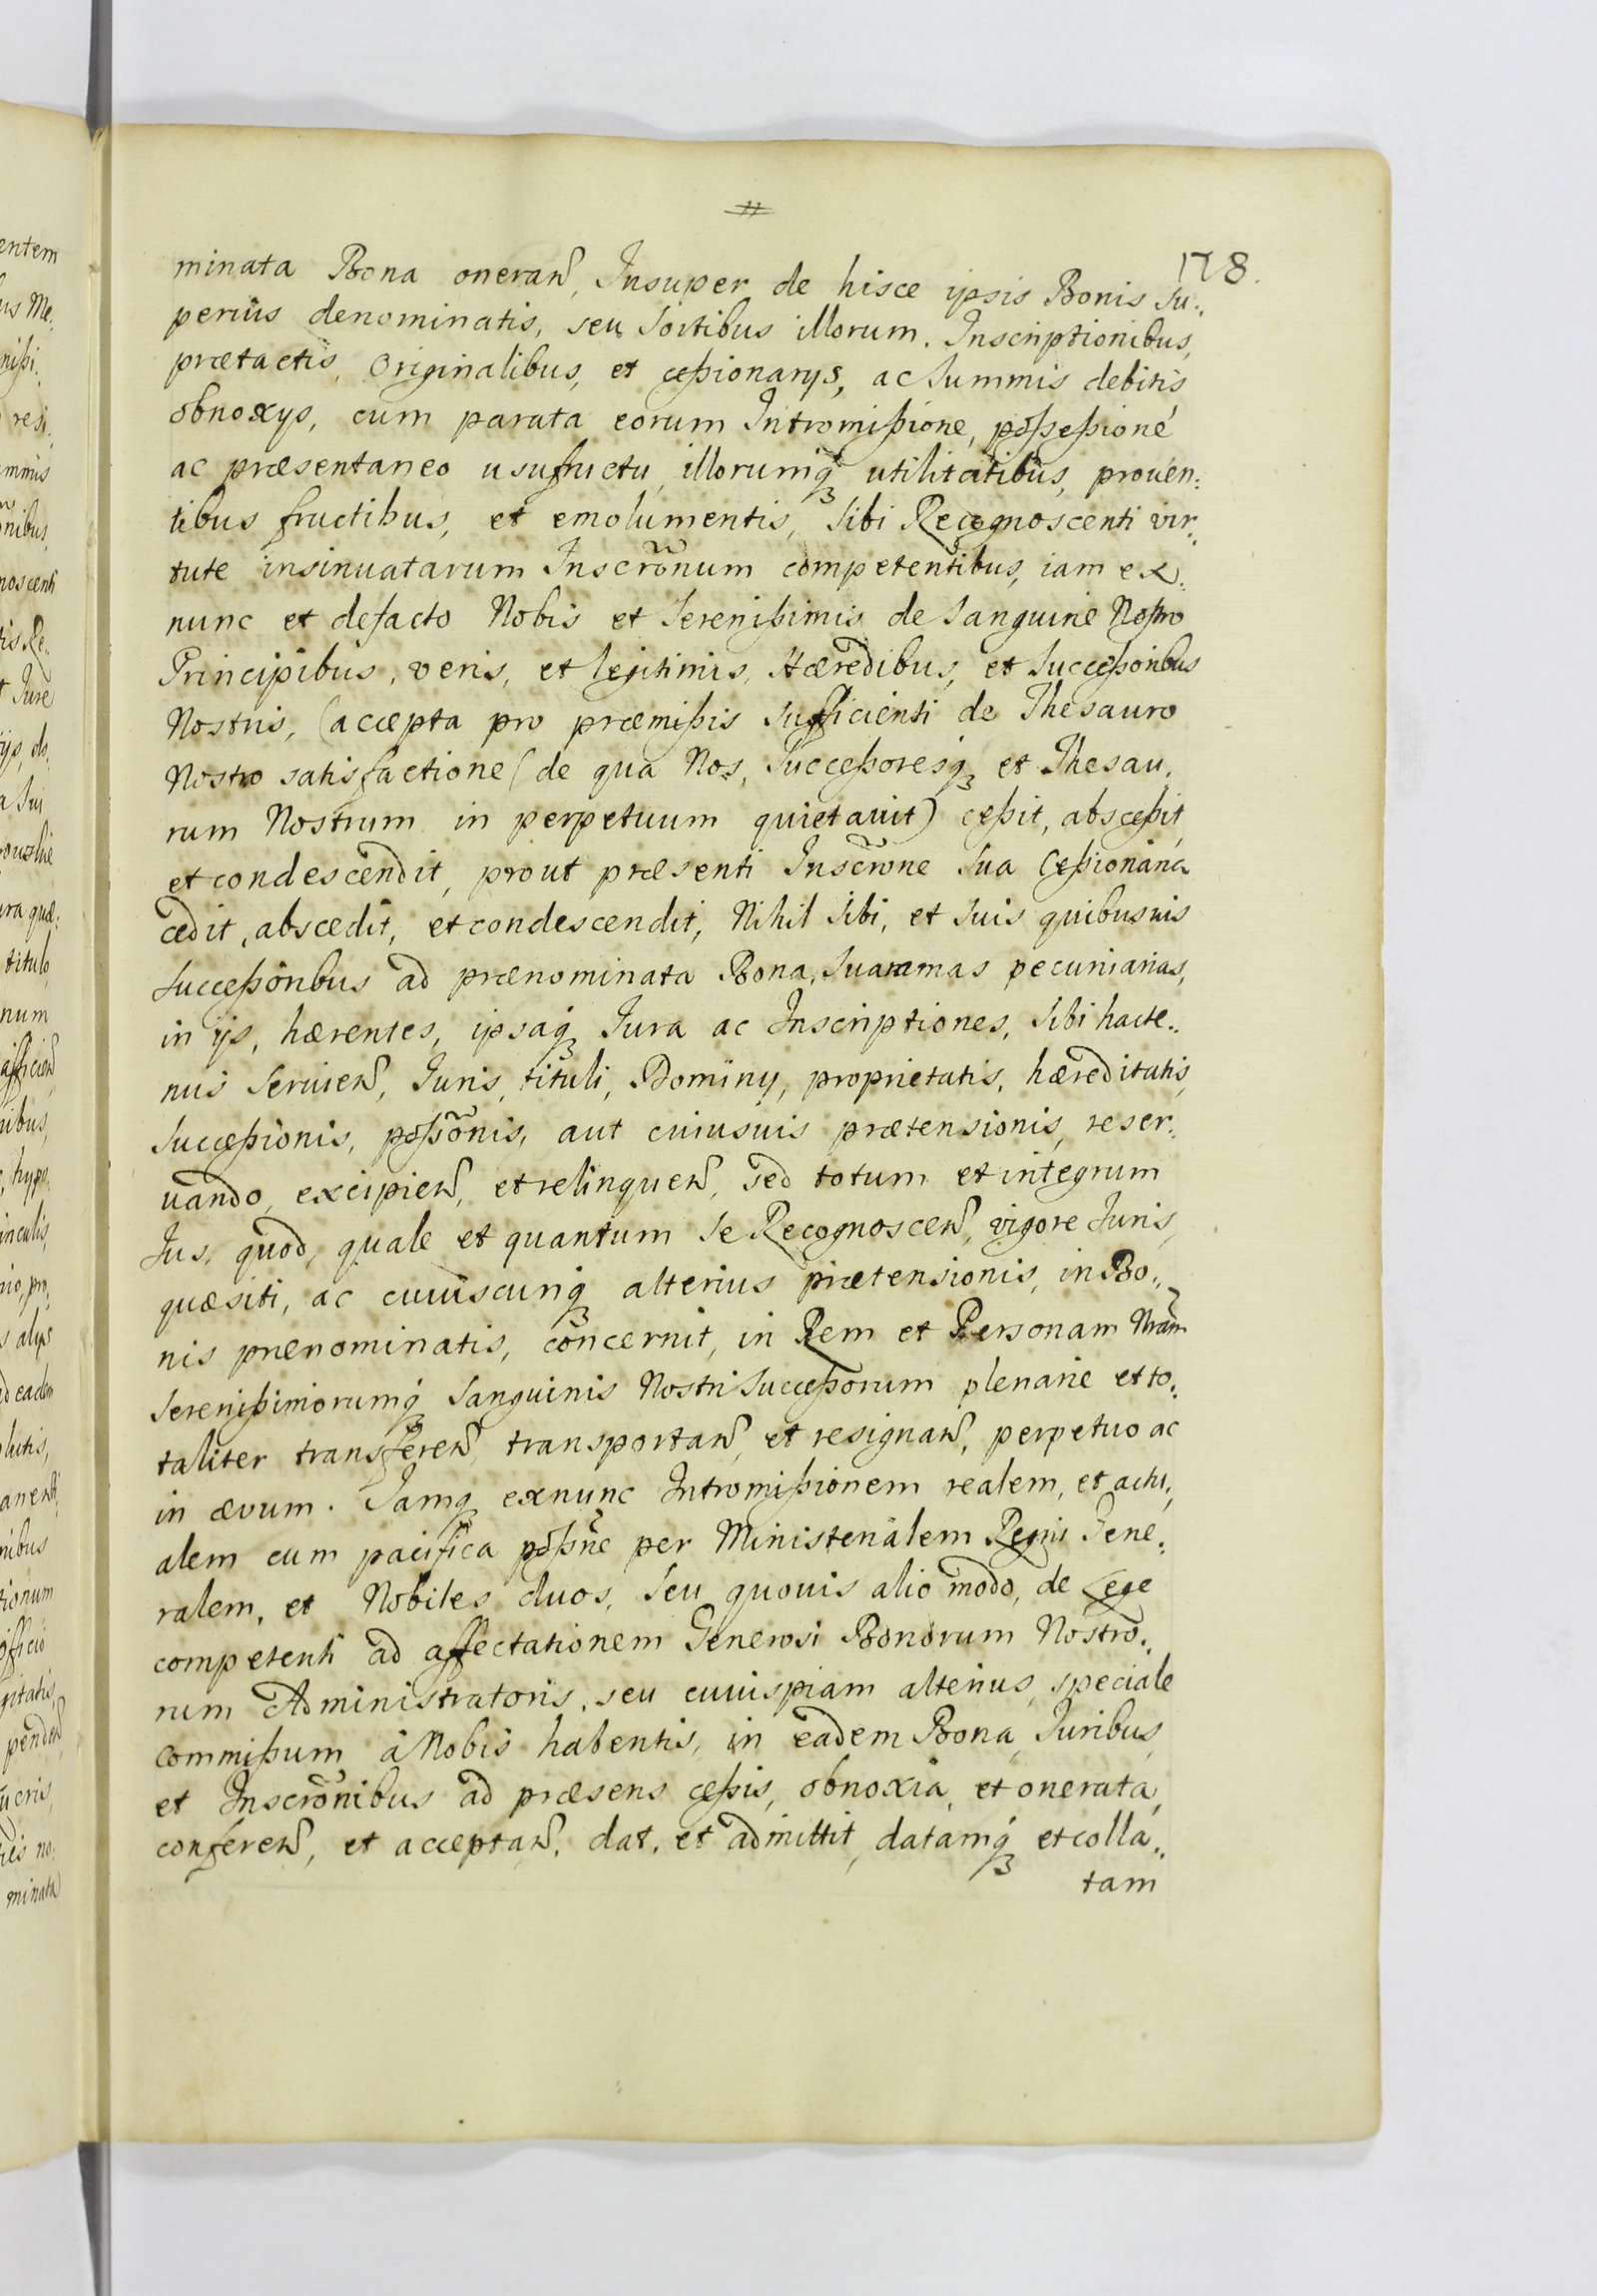 178.
minata Bona oneran̄, Insuper de hisce ipsis Bonis Su-
perius denominatis, seu Sortibus illorum. Inscriptionibus,
prætactis, Originalibus, et ceßionarys, ac Summis debitis
obnoxys, cum parata eorum Intromißione, poßeßione
ac præsentaneo usufructu, illorumq3 utilitatibus, prouen:
tibus fructibus, et emolumentis, Sibi Recognoscenti vir-
tute insinuatarum Inscrõnum competentibus, iam ex.
nunc et defacto Nobis et Serenißimis de Sanguine Nostro
Principibus, veris, et legitimis, Hæredibus, et Succeßoribus
Nostris, (accepta pro præmißis Sufficienti de Thesauro
Nostro satisfactione (de qua Nos, Succeßoresq3 et Thesau,
rum Nostrum in perpetuum quietauit) ceßit, absceßit,
et condescendit, prout præsenti Inscrõne Sua Ceßionaria
cedit, abscedit, et condescendit, Nihil Sibi, et Suis quibusuis
Succeßoribus ad prænominata Bona, Summas pecuniarias,
in ijs, hærentes, ipsaq3 Jura ac Inscriptiones, Sibi hacte..
nus Seruien̄, Juris, tituli, Dominy, proprietatis, hæreditatis,
Succeßionis, poßõnis, aut cuiusuis prætensionis, reser-
uando, excipien̄, et relinquen̄, sed totum et integrum
Jus, quod, quale et quantum Se Recognoscen̄, vigore Juris,
quæsiti, ac cuiuscunq3 alterius prætensionis, in Bo..
nis prænominatis, concernit, in Rem et Personam Nrãm
Serenißimorumq3 Sanguinis Nostri Succeßorum plenarie et to.
taliter transferen̄, transportan̄, et resignan̄, perpetuo ac
in ævum. Jamq3 exnunc Intromißionem realem, et actu,
alem cum pacifica poßne per Ministerialem Regni Gene.
ralem, et Nobiles duos, Seu quouis alio modo, de Lege
competenti ad affectationem Generosi Bonorum Nostro..
rum Administratoris, seu cuiuspiam alterius, speciale
commißum à Nobis habentis, in eadem Bona, Juribus,
et Inscrõnibus ad præsens ceßis, obnoxia, et onerata,
conferen̄, et acceptan̄, dat, et admittit, datamq3 et colla..
tam